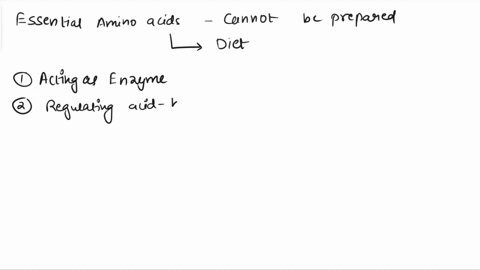 Essential Amino acids - Cannot be prepared
Diet
① Acting as Enzyme
② Regulating acid-